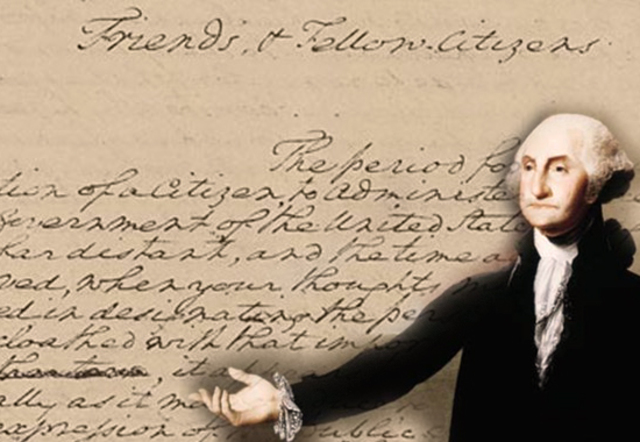 Friends, & Fellow-Citizens
The period fo
tion of a Citizen, to administe
Government of the United State
har distant, and the time a
ved, when your thoughts m
ed in designating the per
cloathed with that impo
, it a
ally as it m
expression of public